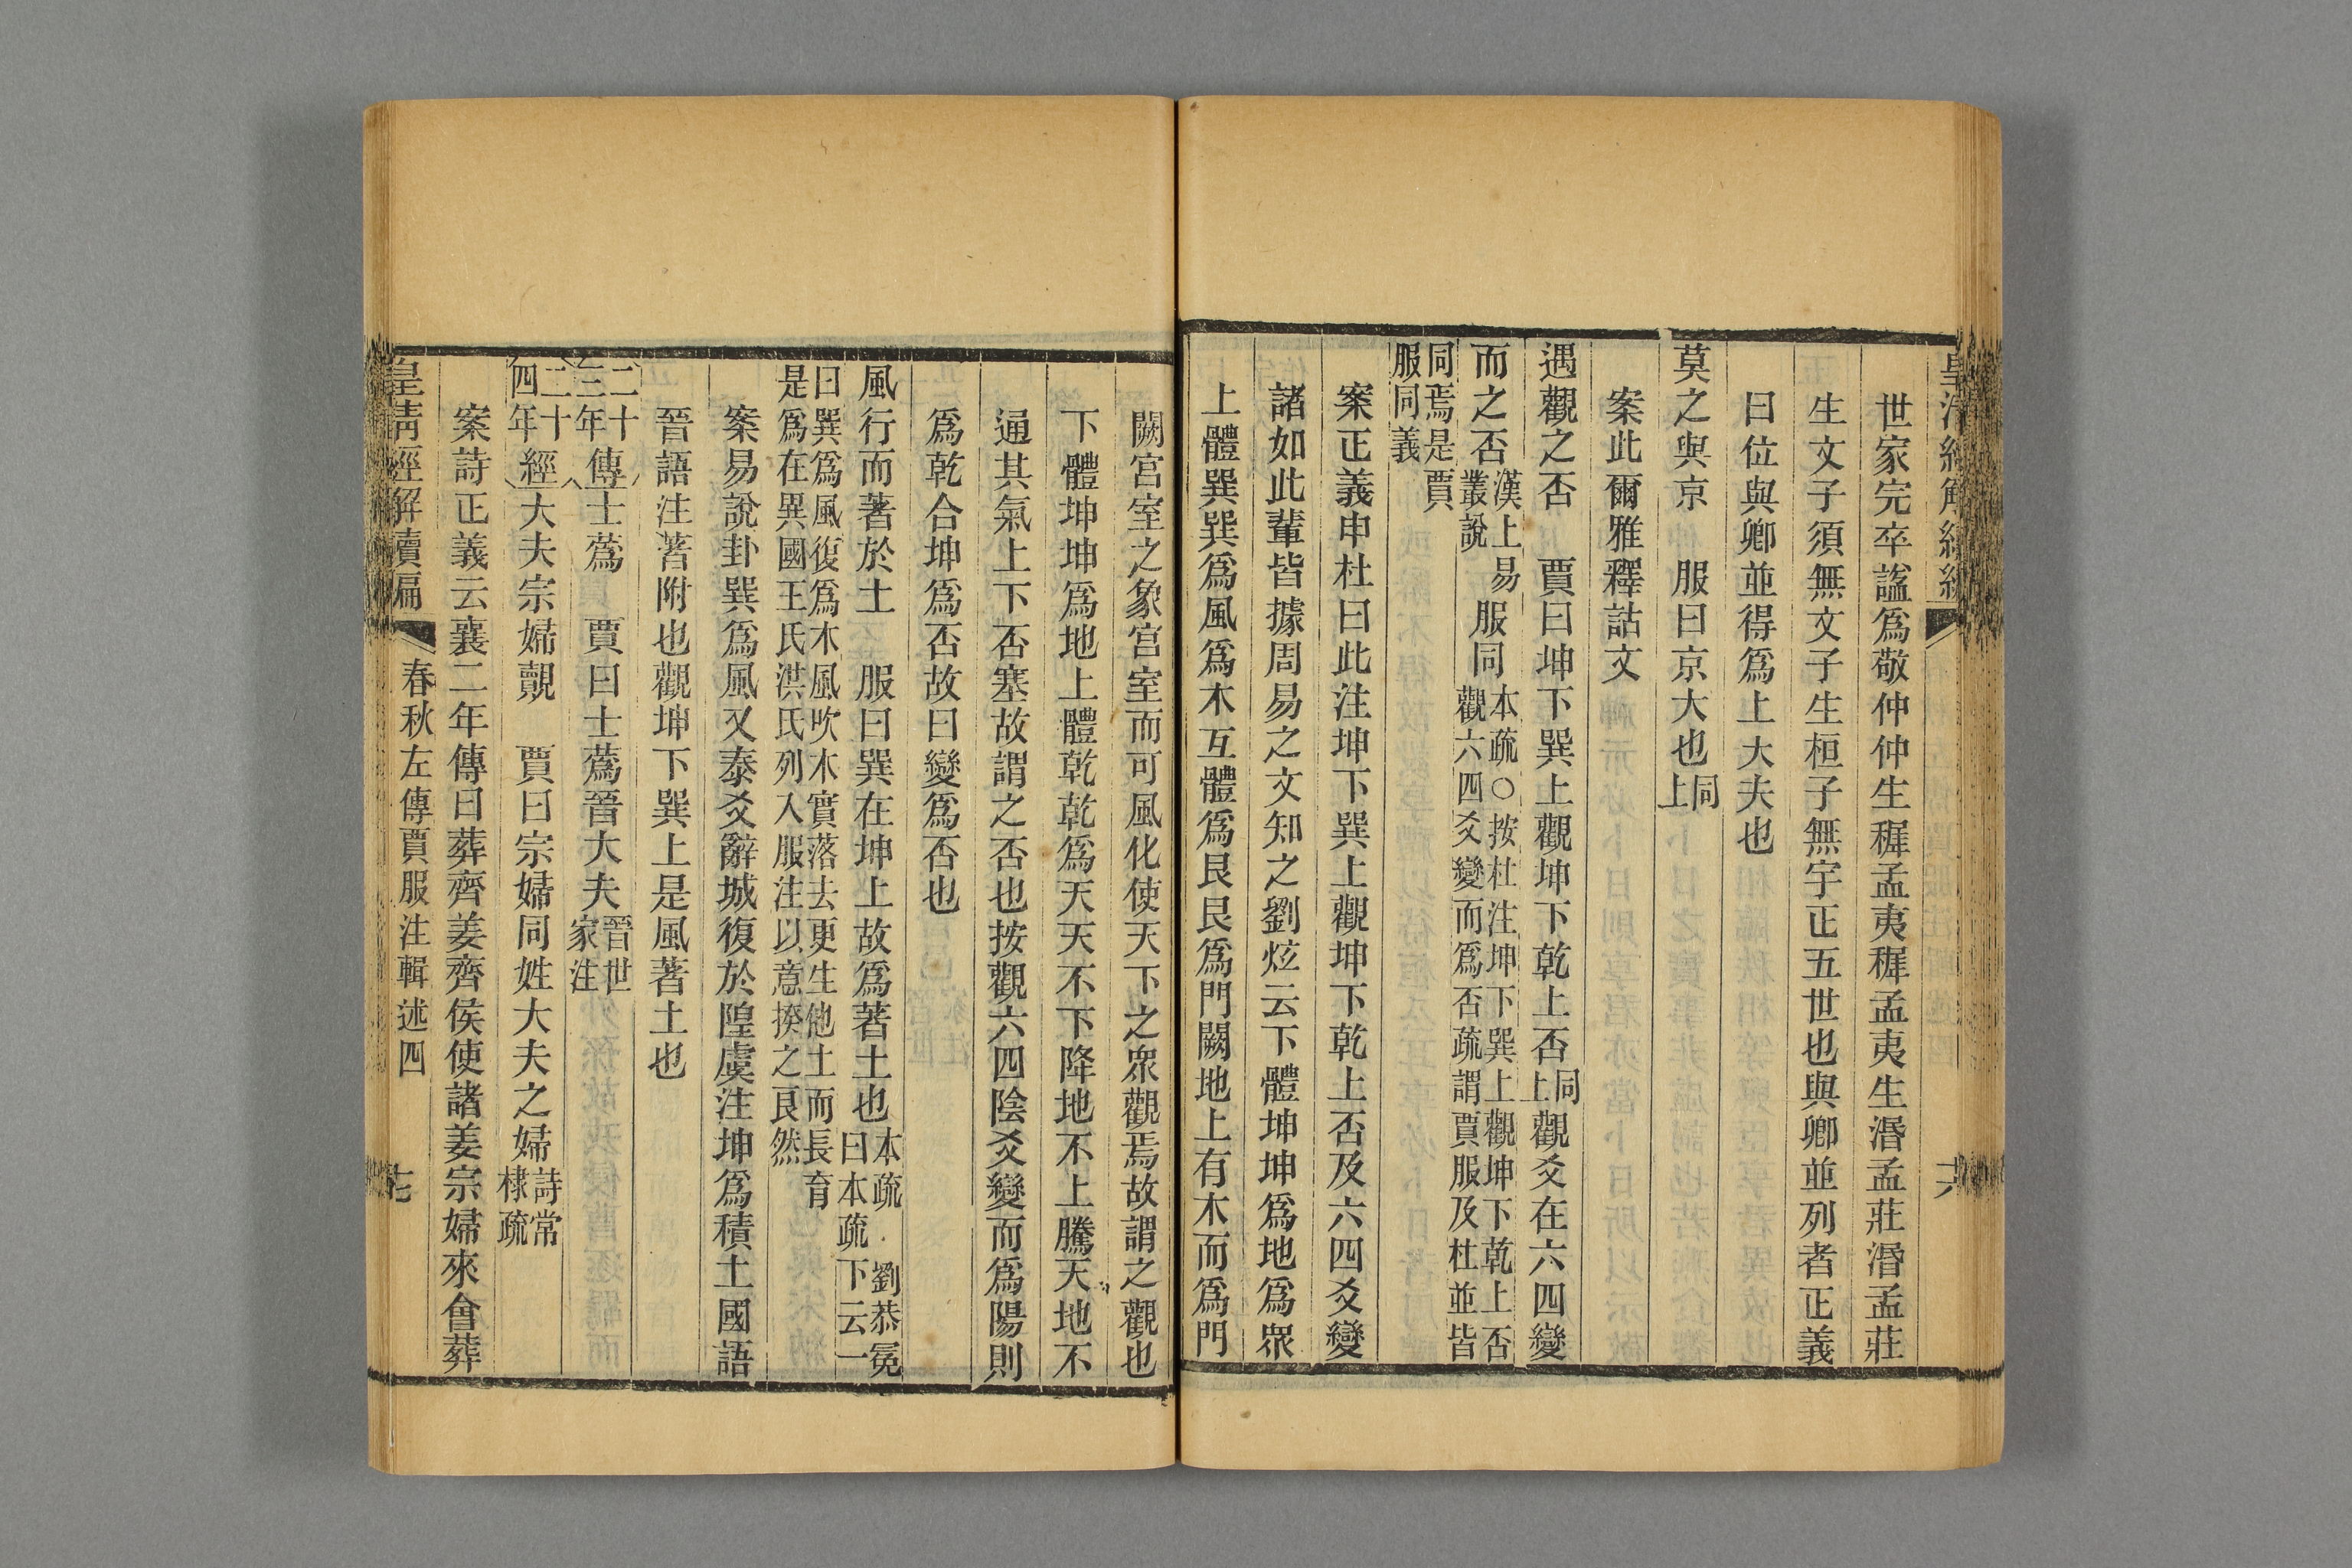 世家完卒諡爲敬仲仲生穉孟夷穉孟夷生湣孟莊湣孟莊
生文子須無文子生桓子無宇正五世也與卿並列者正義
曰位與卿並得爲上大夫也
莫之與京　服曰京大也同上
案此爾雅釋詁文
遇觀之否　賈曰坤下巽上觀坤下乾上否同上觀爻在六四變
而之否漢上易叢說　服同本疏○按杜注坤下巽上觀坤下乾上否觀六四爻變而爲否疏謂賈服及杜並皆
同焉是賈服同義
案正義申杜曰此注坤下巽上觀坤下乾上否及六四爻變
諸如此輩皆據周易之文知之劉炫云下體坤坤爲地爲眾
上體巽巽爲風爲木互體爲艮艮爲門闕地上有木而爲門
闕宮室之象宮室而可風化使天下之眾觀焉故謂之觀也
下體坤坤爲地上體乾乾爲天天不下降地不上騰天地不
通其氣上下否塞故謂之否也按觀六四陰爻變而爲陽則
爲乾合坤爲否故曰變爲否也
風行而著於土　服曰巽在坤上故爲著土也本疏　劉恭冕曰本疏下云一
曰巽爲風復爲木風吹木實落去更生他土而長育是爲在異國王氏淇氏列入服注以意揆之良然
案易說卦巽爲風又泰爻辭城復於隍虞注坤爲積土國語
晉語注著附也觀坤下巽上是風著土也
二十三年傳士蔿　賈曰士蔿晉大夫晉世家注
二十四年經大夫宗婦覿　賈曰宗婦同姓大夫之婦詩常棣疏
案詩正義云襄二年傳曰葬齊姜齊侯使諸姜宗婦來會葬
皇清經解續編　春秋左傳賈服注輯述四